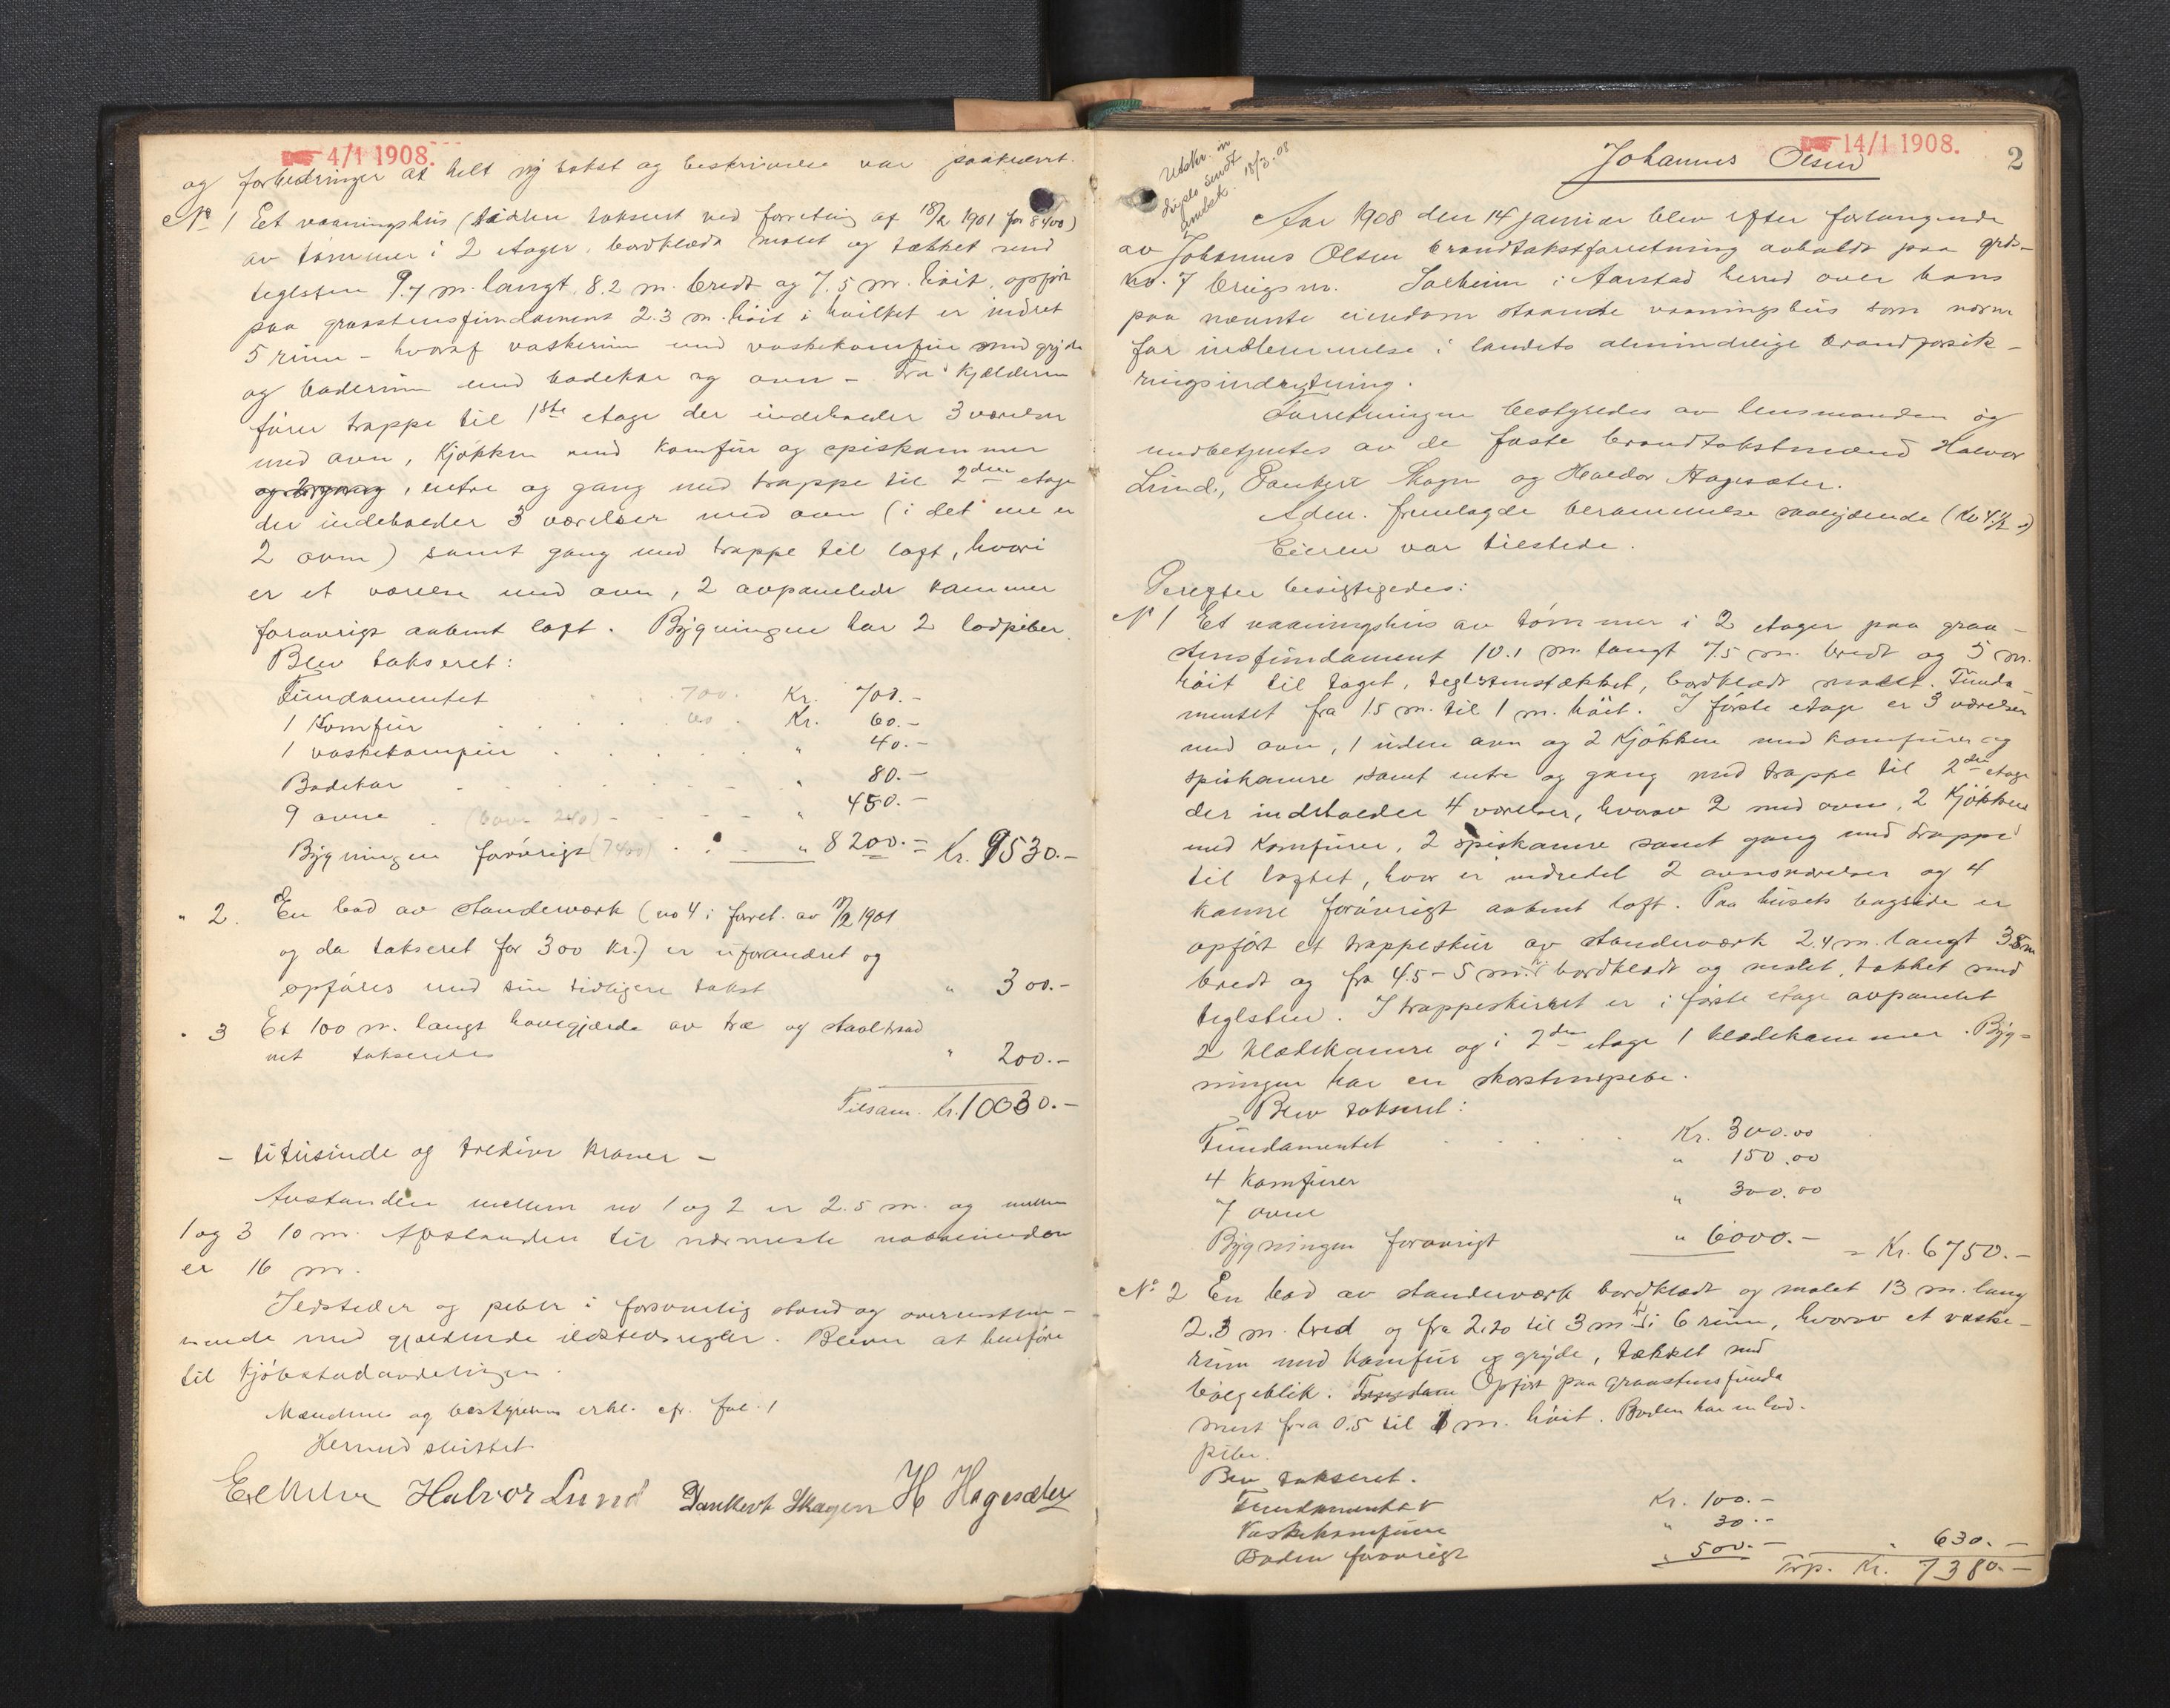 4/1 1908.
og forbedringer at helt ny takst og beskrivelse var paakrævet.
No 1 Et vaaningshus (siden taksert ved forretning af 18/12 1901 for 8400)
av tømmer i 2 etager, bordklædt malet og tækket med
teglsten 9.7 m. langt, 8.2 m. bredt og 7.5 m. høit, opført
paa graastensfundament 2.3 m. høit i hvilket er indret
5 rum - hvoraf vaskerum med vaskekomfur med gryde
og baderum med badekar og ovn - Fra kjælderen
fører trappe til 1ste etage der indeholder 3 værelser
med ovn, kjøkken med komfur og spiskammer
, entre og gang med trappe til 2den etage
der indeholder 3 værelser med ovn (i det ene er
2 ovne) samt gang med trappe til loft, hvori
er et værelse med ovn, 2 avpanelede kammer
forøvrigt aabent loft. Bygningen har 2 lodpiber.
Blev takseret:
Fundamentet 700. Kr. 700.-
1 Komfur 60 Kr. 60.-
1 vaskekomfur " 40.-
Badekar " 80.-
9 ovne " 450.-
Bygningen forøvrigt (7400) " 8200.- = Kr. 9530.-
" 2. En bod av standeværk (no 4 i forret. av 18/12 1901
og da takseret for 300 kr.) er uforandret og
opføres med sin tidligere takst " 300.-
" 3 Et 100 m. langt havegjærde av træ og staaltraad
net takseredes " 200.-
Tilsam. Kr. 10030.-
- titusinde og tredive kroner -
Avstanden mellem no 1 og 2 er 2.5 m. og mellem
1 og 3 10 m. Afstanden til nærmeste naboeiendom
er 16 m.
Ildsteder og piber i forsvarlig stand og overensstem-
mende med gjældende ildstedsregler. Blever at henføre
til Kjøbstadavdelingen.
Mændene og bestyreren erkl. cfr. fol. 1
Hermed sluttet.
Halvor Lund Dankert Skagen H Hagesæter
14/1 1908.
2
Johannes Olsen
Utskr. in
duplo sendt
18/3.08
Aar 1908 den 14 januar blev efter forlangende
av Johannes Olsen brandtakstforretning avholdt paa grds-
no. 7 brugsnr. Solheim i Aarstad herred over hans
paa nævnte eiendom staaende vaaningshus som norm
for indlemmelse i landets almindelige brandforsik-
ringsindretning.
Forretningen bestyredes av lensmanden og
medbetjentes av de faste brandtakstmænd Halvor
Lund, Dankert Skagen og Haldor Hagesæter.
Adm. fremlagde berammelse saalydende
Eieren var tilstede.
Derefter besigtigedes:
No 1 Et vaaningshus av tømmer i 2 etager paa graa-
stensfundament 10.1 m. langt 7.5 m. bredt og 5 m.
høit til taget, teglstenstækket, bordklædt malet. Funda-
mentet fra 1.5 m. til 1 m. høit. I første etage er 3 værelser
med ovn, 1 uden ovn og 2 kjøkken med komfurer og
spiskamre samt entre og gang med trappe til 2den etage
der indeholder 4 værelser, hvorav 2 med ovne, 2 kjøkkene
med komfurer, 2 spiskamre samt gang med trappe
til loftet, hvor er indredet 2 ovnsværelser og 4
kamre forøvrigt aabent loft. Paa husets bagside er
opført et trappeskur av standeværk 2.4 m. langt 3.8 m
bredt og fra 4.5 - 5 m. bordklædt og malet, tækket med
teglsten. I trappeskuret er i første etage avpanelet
2 klædekamre og i 2den etage 1 klædekammer. Byg-
ningen har en skorstenspibe.
Blev takseret:
Fundamentet Kr. 300.00
4 Komfurer " 150.00
7 ovne " 300.00
Bygningen forøvrigt " 6000.- = Kr. 6750.-
No 2 En bod av standeværk bordklædt og malet 13 m. lang
2.3 m. bred og fra 2.20 til 3 m. h. i 6 rum, hvorav et vaske-
rum med komfur og gryde, tækket med
bølgeblik. Opført paa graastensfunda
ment fra 0.5 til 1 m. høit. Boden har en lod-
pibe.
Blev takseret.
Fundamentet Kr. 100.-
Vaskekomfuren " 30.-
Boden forøvrigt " 500.- " 630.-
Trp. Kr. 7380.-